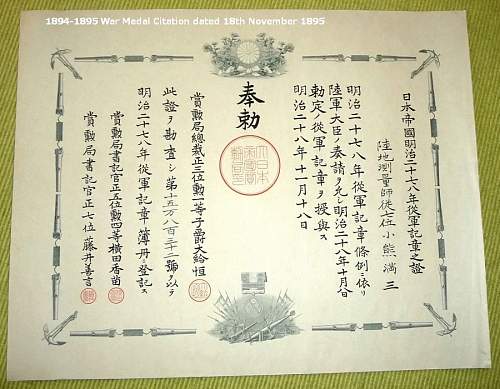 1894-1895 War Medal Citation dated 18th November 1895
日本帝國明治二十七八年從軍記章之證
陸地測量師從七位小熊満三
明治二十七八年從軍記章條例ニ依リ
陸軍大臣ノ奏請ヲ允シ明治二十八年十月八
勅定ノ從軍記章ヲ授與ス
明治二十八年十一月十八日
奉勅
賞勲局總裁正三位勲一等子爵大給恒
此證ヲ勘査シ第十五万八百三十二號ヲ以テ
明治二十七八年從軍記章簿冊ニ登記ス
賞勲局書記官正五位勲四等横田香苗
賞勲局書記官正七位藤井善言